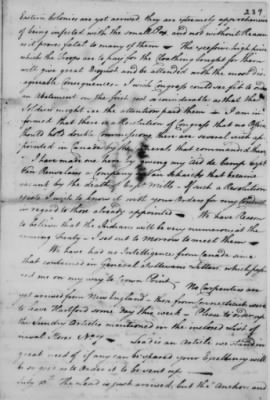 239
Eastern Colonies are yet arrived they are extremely apprehensive
of being infected with the small Pox and not without Reason
as it proves fatal to many of them - The excessive high price
which the Troops are to pay for the Cloathing bought for them
will give great Disgust and be attended with the most dis-
agreeable consequences. I wish Congress could see fit to order
an abatement on the first cost
Soldiers might in the
formed that there is a Resolution of Congress that no Officer
should hold double Commissions there are several such ap
pointed in Canada by the General that commanded there
I have made one here by giving my Aid de Camp Capt
Van Renselaer a Company
vacant by the death of Capt Mills - If such a Resolution
exists I wish to know it with your Orders for my
in regard to those already appointed - We have Reason
to believe that the Indians will be very numerous at the
ensuing Treaty - I set out to Morrow to meet them -
We have had no Intelligence from Canada since
that contained in General Sullivans Letters which
ed me on my way to Crown Point No Carpenters are
yet arrived from New England
to leave Hartford some Day this week - Please to order up
the Sundry Articles mentioned in the inclosed List of
naval Stores No
Lead is an Article we stand in
great need of if any can be spared your Excellency will
be so good as to Order it to be sent up -
July The Lead is just arrived, but the Anchors and